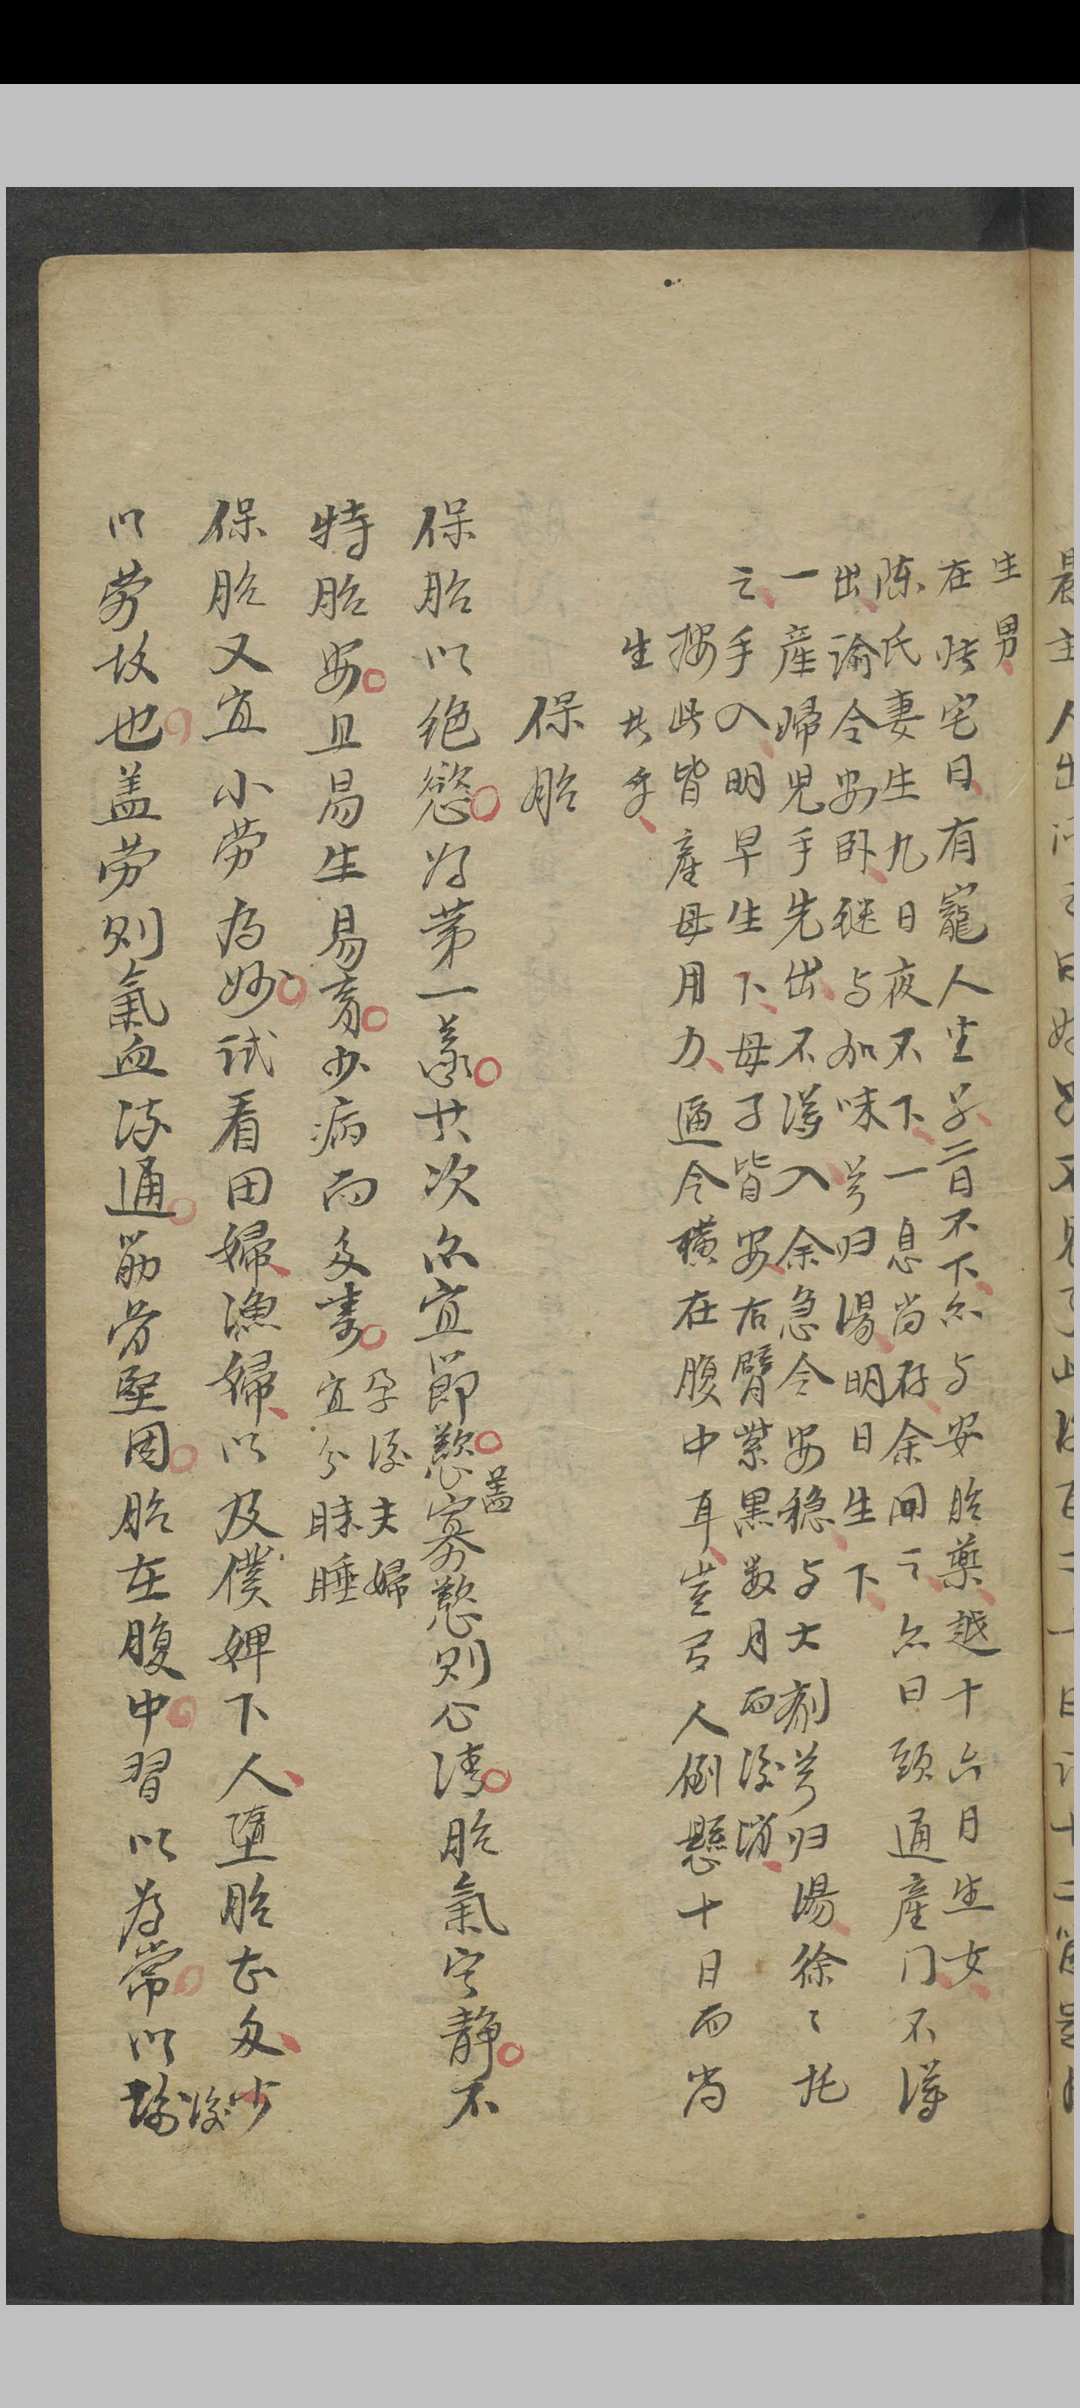 生男
在时宅日有寵人坐子二日不下亦与安胎藥越十六日生女
陈氏妻生九日夜不下一息尚存余问之亦曰頭通産门不得
出谕令安卧继与加味芎归湯明日生下
一産婦兒手先出不得入余急令安稳与大剂芎归湯徐〻托
之手入明早生下母子皆安右臂紫黑数月而後消
按此皆産母用力逼令横在腹中耳豈有人倒懸十日而尚
生者乎
保胎
保胎以绝慾为第一義其次亦宜節慾盖寡慾則心清胎氣宁静不
特胎安且易生易育少病而多寿孕後夫婦宜分床睡
保胎又宜小劳为妙试看田婦漁婦以及僕婢下人墮胎甚少
以劳故也盖劳則氣血流通筋骨坚固胎在腹中習以為常以後